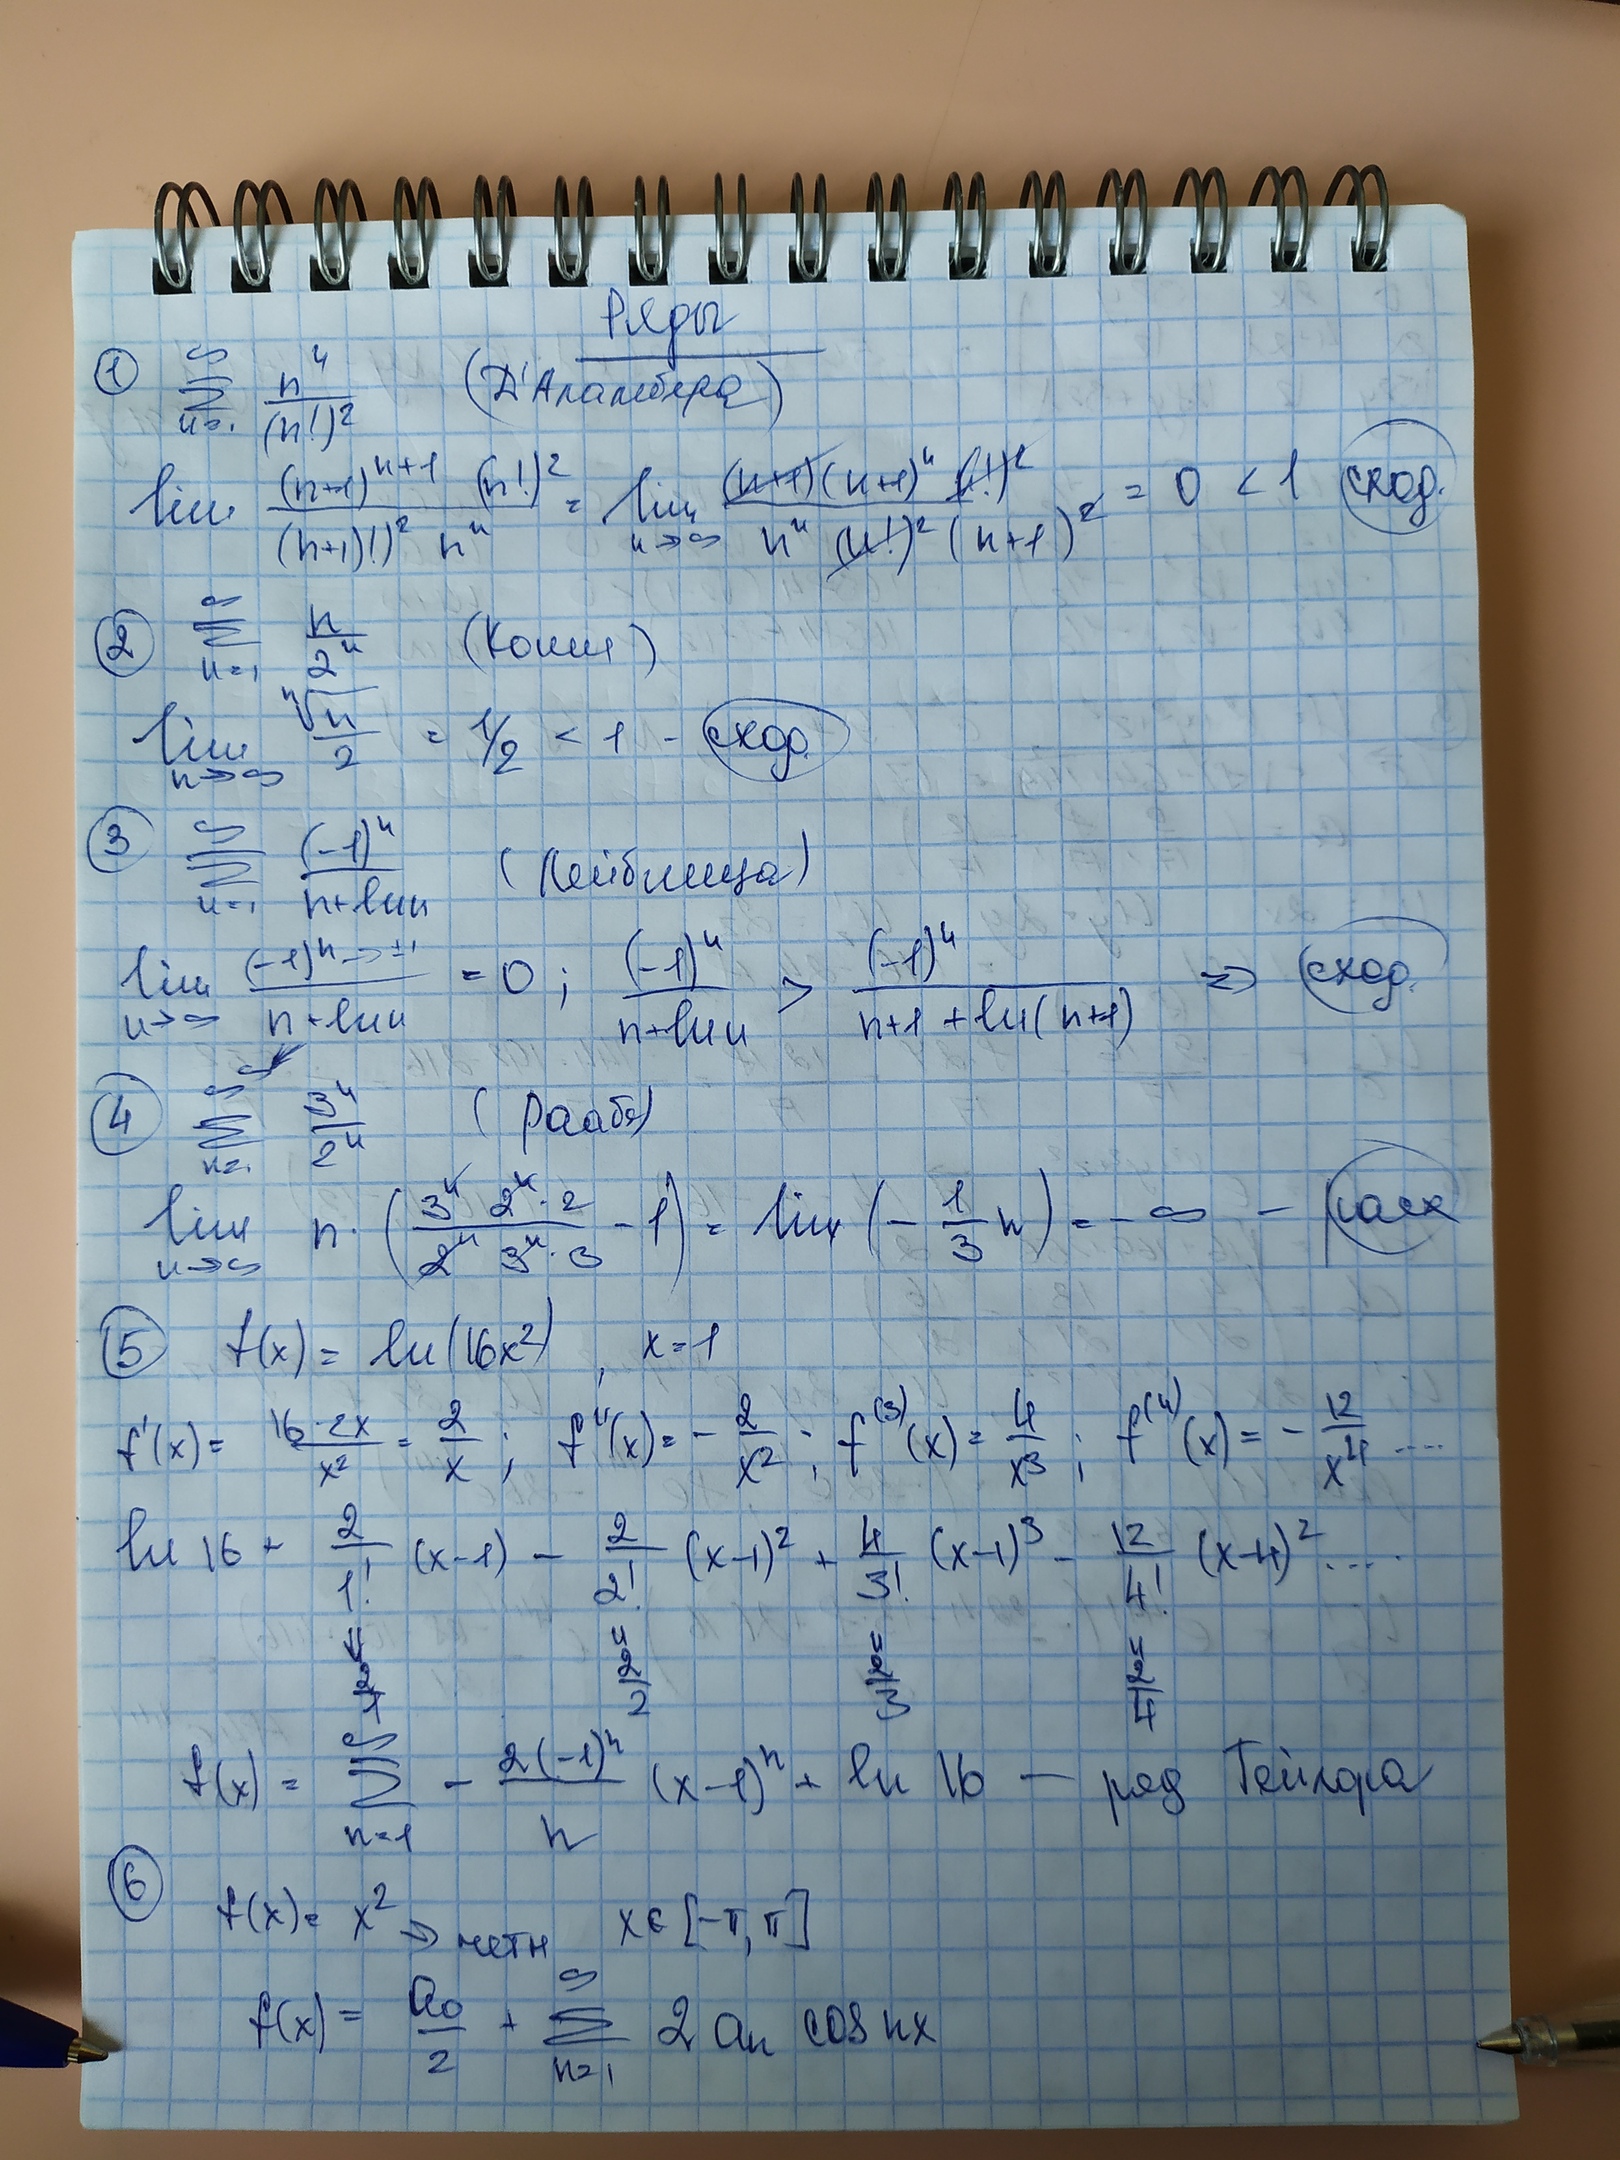 Ряды
① ∑_{n=1}^{∞} n^n/(n!)^2 (Д'Аламбера)
lim (n+1)^{n+1} (n!)^2 / ((n+1)!)^2 n^n = lim_{n→∞} (n+1)(n+1)^n (n!)^2 / n^n (n!)^2 (n+1)^2 = 0 < 1 сход.
② ∑_{n=1}^{∞} n/2^n (Коши)
lim_{n→∞} ⁿ√n/2 = 1/2 < 1 - сход.
③ ∑_{n=1}^{∞} (-1)^n/(n+ln n) (Лейбница)
lim_{n→∞} (-1)^n→±1 / (n+ln n) = 0 ; (-1)^n/(n+ln n) > (-1)^n/(n+1+ln(n+1)) ⇒ сход.
④ ∑_{n=1}^{∞} 3^n/2^n (Раабе)
lim_{n→∞} n·(3^n 2^n·2 / 2^n 3^n·3 - 1) = lim (- 1/3 n) = -∞ - расх
⑤ f(x) = ln(16x^2) , x=1
f'(x) = 16·2x/x^2 = 2/x ; f''(x) = - 2/x^2 ; f^{(3)}(x) = 4/x^3 ; f^{(4)}(x) = - 12/x^4 ....
ln 16 + 2/1! (x-1) - 2/2! (x-1)^2 + 4/3! (x-1)^3 - 12/4! (x-4)^2 ....
= 2/1 = 2/2 = 2/3 = 2/4
f(x) = ∑_{n=1}^{∞} - 2(-1)^n/n (x-1)^n + ln 16 — ряд Тейлора
⑥
f(x) = x^2 → четн x ∈ [-π, π]
f(x) = a_0/2 + ∑_{n=1}^{∞} 2 a_n cos nx